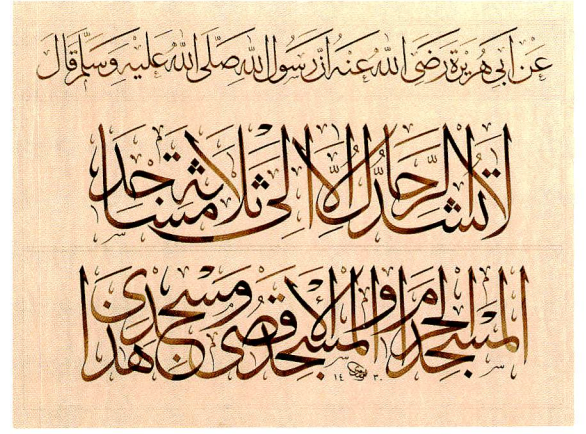 عَنْ أَبِي هُرَيْرَةَ رَضِيَ اللَّهُ عَنْهُ أَنَّ رَسُولَ اللَّهِ صَلَّى اللَّهُ عَلَيْهِ وَسَلَّمَ قَالَ
لَا تُشَدُّ الرِّحَالُ إِلَّا إِلَى ثَلَاثَةِ مَسَاجِدَ
المَسْجِدِ الحَرَامِ وَالمَسْجِدِ الأَقْصَى وَمَسْجِدِي هَذَا
١٤٣٠